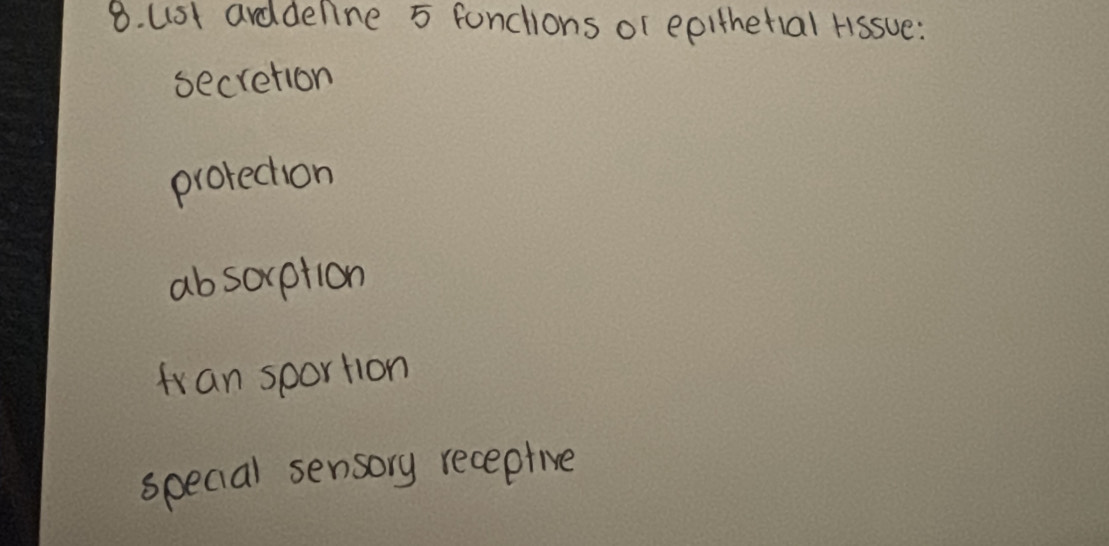 8. List and define 5 functions of epithetial tissue:
secretion
protection
absorption
transportion
special sensory receptive